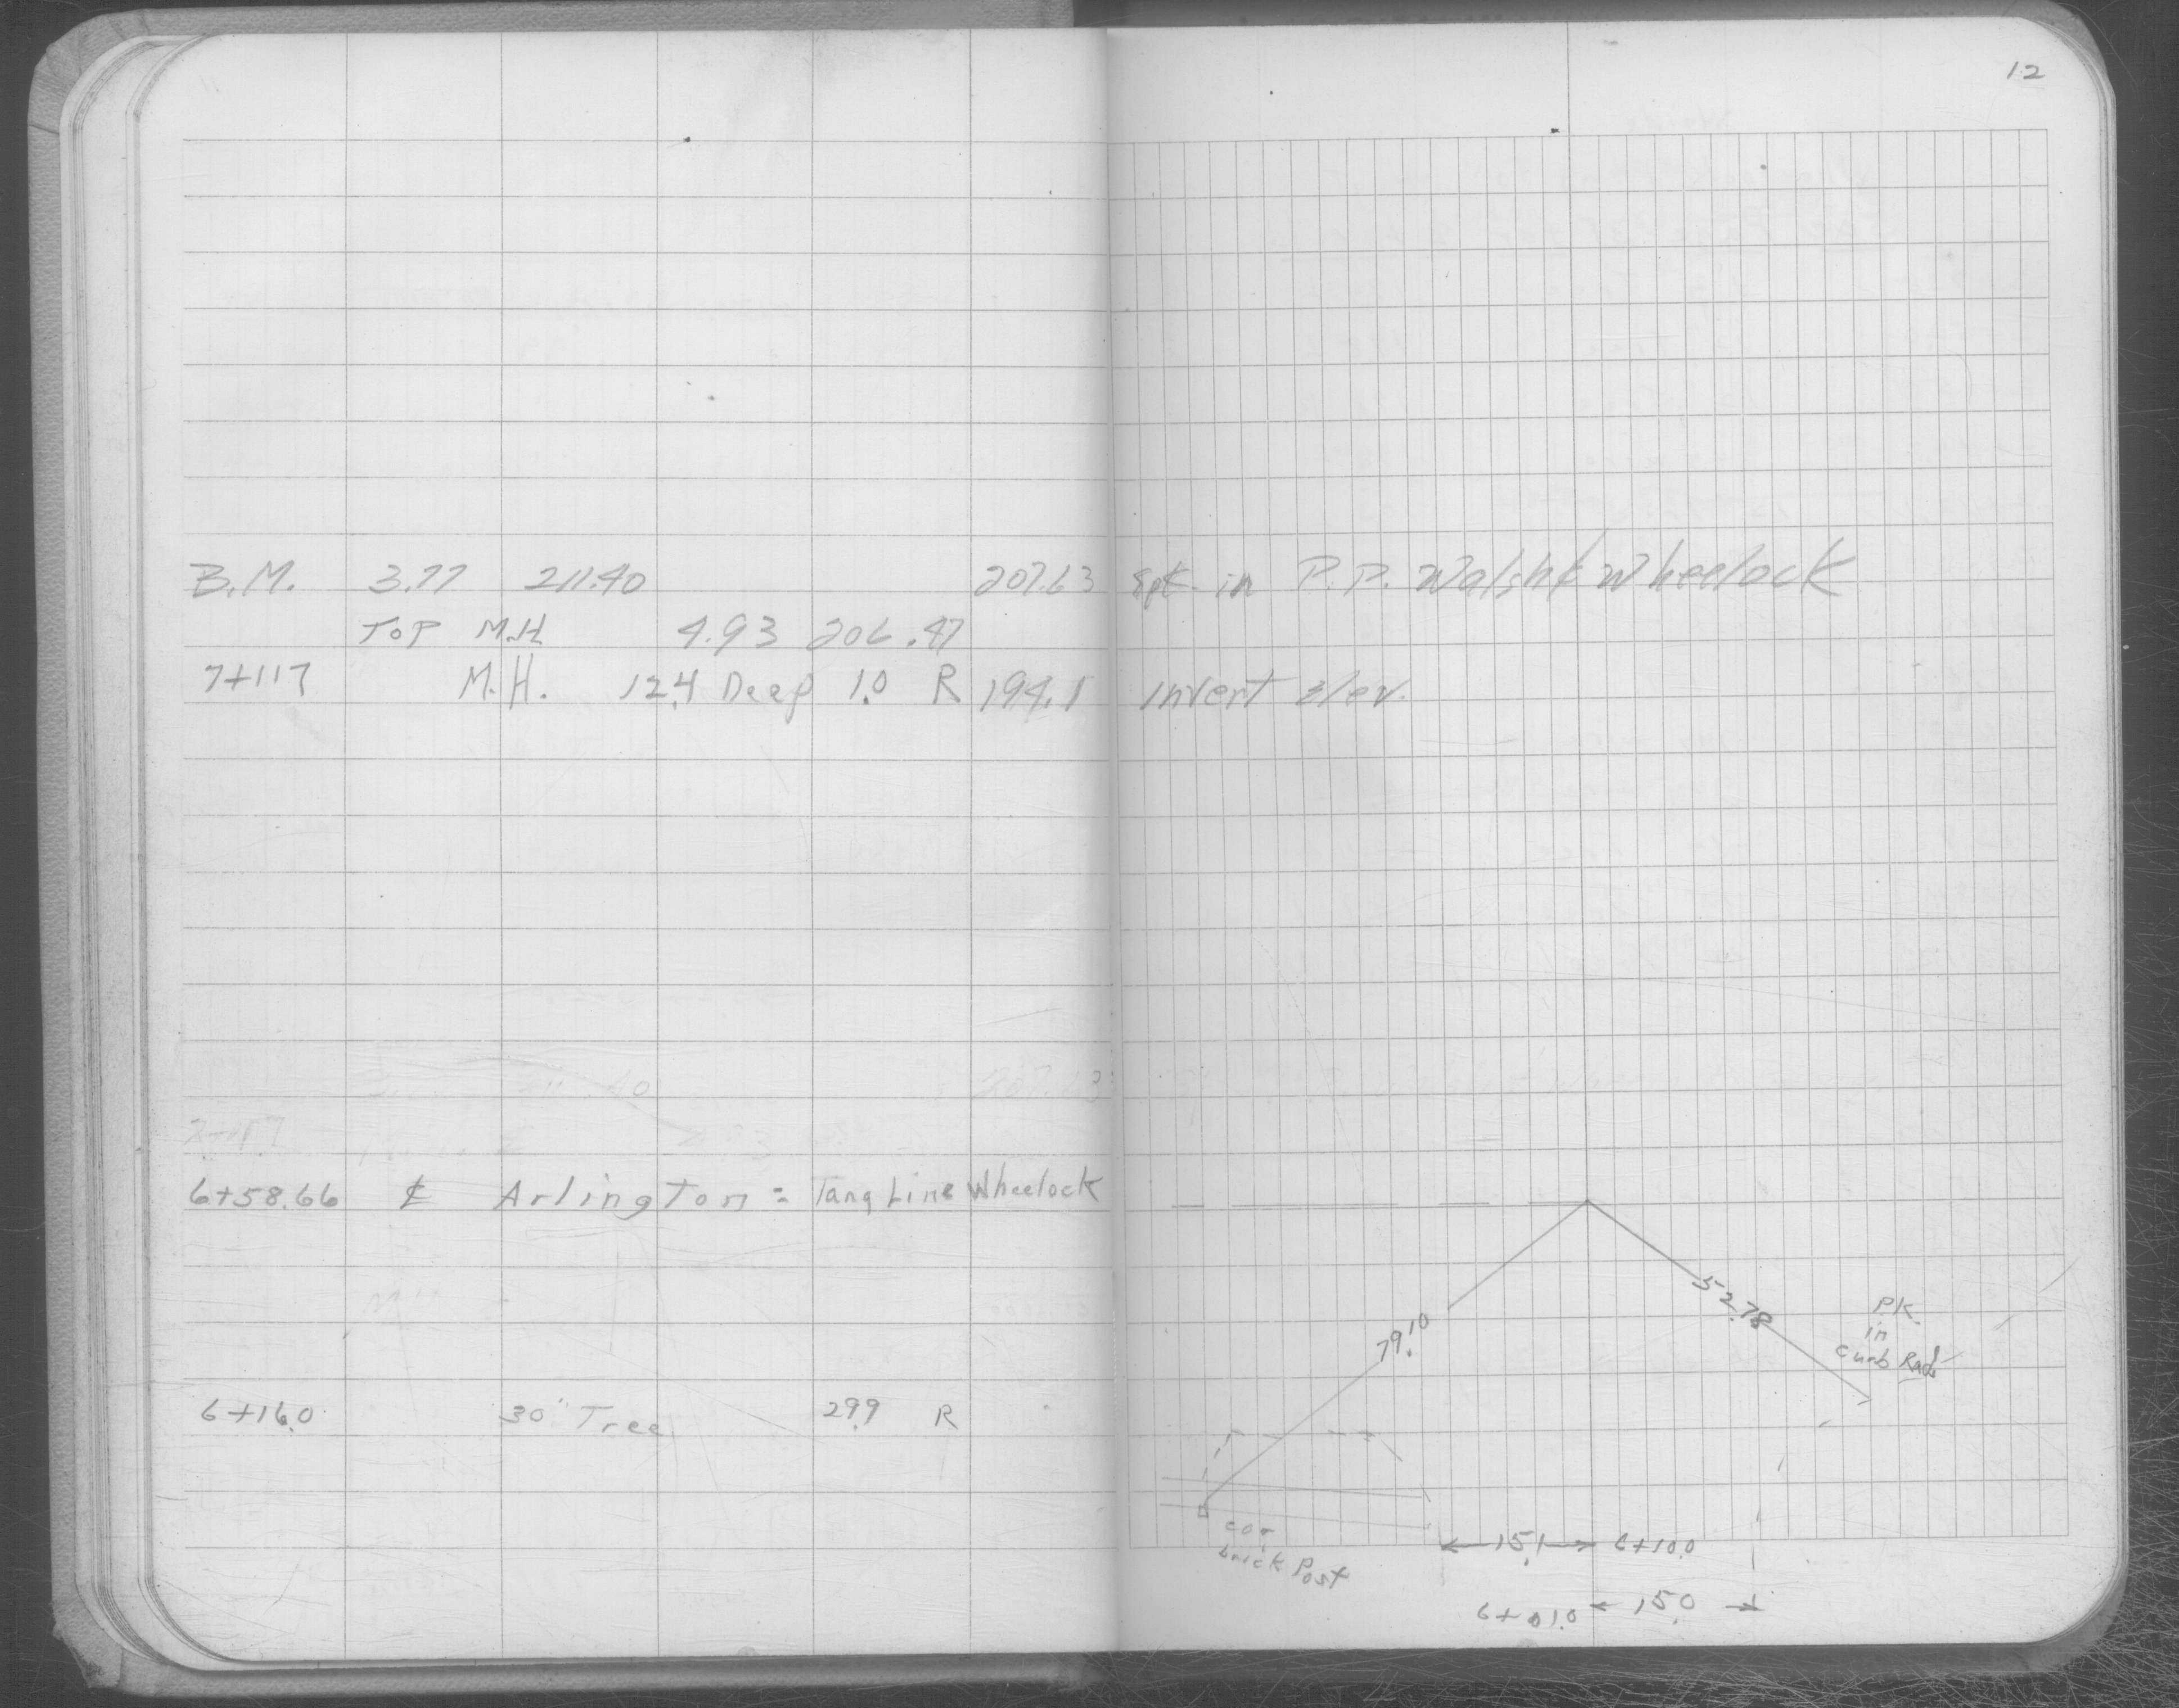 12
B.M. 3.77 211.40 207.63 Spk in P.P. Walsh & Wheelock
TOP M.H 4.93 206.47
7+117 M.H. 12.4 Deep 1.0 R 194.1 Invert Elev.
211.40 207.63
6+58.66 ℄ Arlington = Tang Line Wheelock
52.78
PK
in
Curb Rad
79.10
6+16.0 30" Tree 29.9 R
cor
brick Post
15.1 6+10.0
6+01.0 15.0